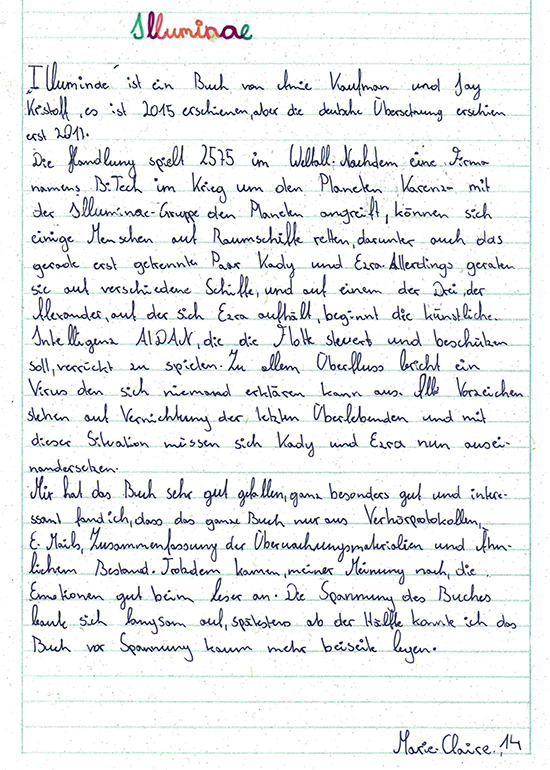 Illuminae
„Illuminae" ist ein Buch von Amie Kaufman und Jay
Kristoff, es ist 2015 erschienen, aber die deutsche Übersetzung erschien
erst 2017.
Die Handlung spielt 2575 im Weltall. Nachdem eine Firma
namens BiTech im Krieg um den Planeten Karenza mit
der Illuminac-Gruppe den Planeten angreift, können sich
einige Menschen auf Raumschiffe retten, darunter auch das
gerade erst getrennte Paar Kady und Ezra. Allerdings geraten
sie auf verschiedene Schiffe, und auf einem der Drei, der
Alexander, auf der sich Ezra aufhält, beginnt die künstliche
Intelligenz AIDAN, die die Flotte steuert und beschützen
soll, verrückt zu spielen. Zu allem Überfluss bricht ein
Virus den sich niemand erklären kann aus. Alle Vorzeichen
stehen auf Vernichtung der letzten Überlebenden und mit
dieser Situation müssen sich Kady und Ezra nun ausei-
nandersetzen.
Mir hat das Buch sehr gut gefallen, ganz besonders gut und inter-
essant fand ich, dass das ganze Buch nur aus Verhörprotokollen,
E-Mails, Zusammenfassung der Überwachungsmaterialien und Ähn-
lichem Bestand. Trotzdem kamen, meiner Meinung nach, die
Emotionen gut beim Leser an. Die Spannung des Buches
baute sich langsam auf, spätestens ab der Hälfte konnte ich das
Buch vor Spannung kaum mehr beiseite legen.
Marie-Claire, 14